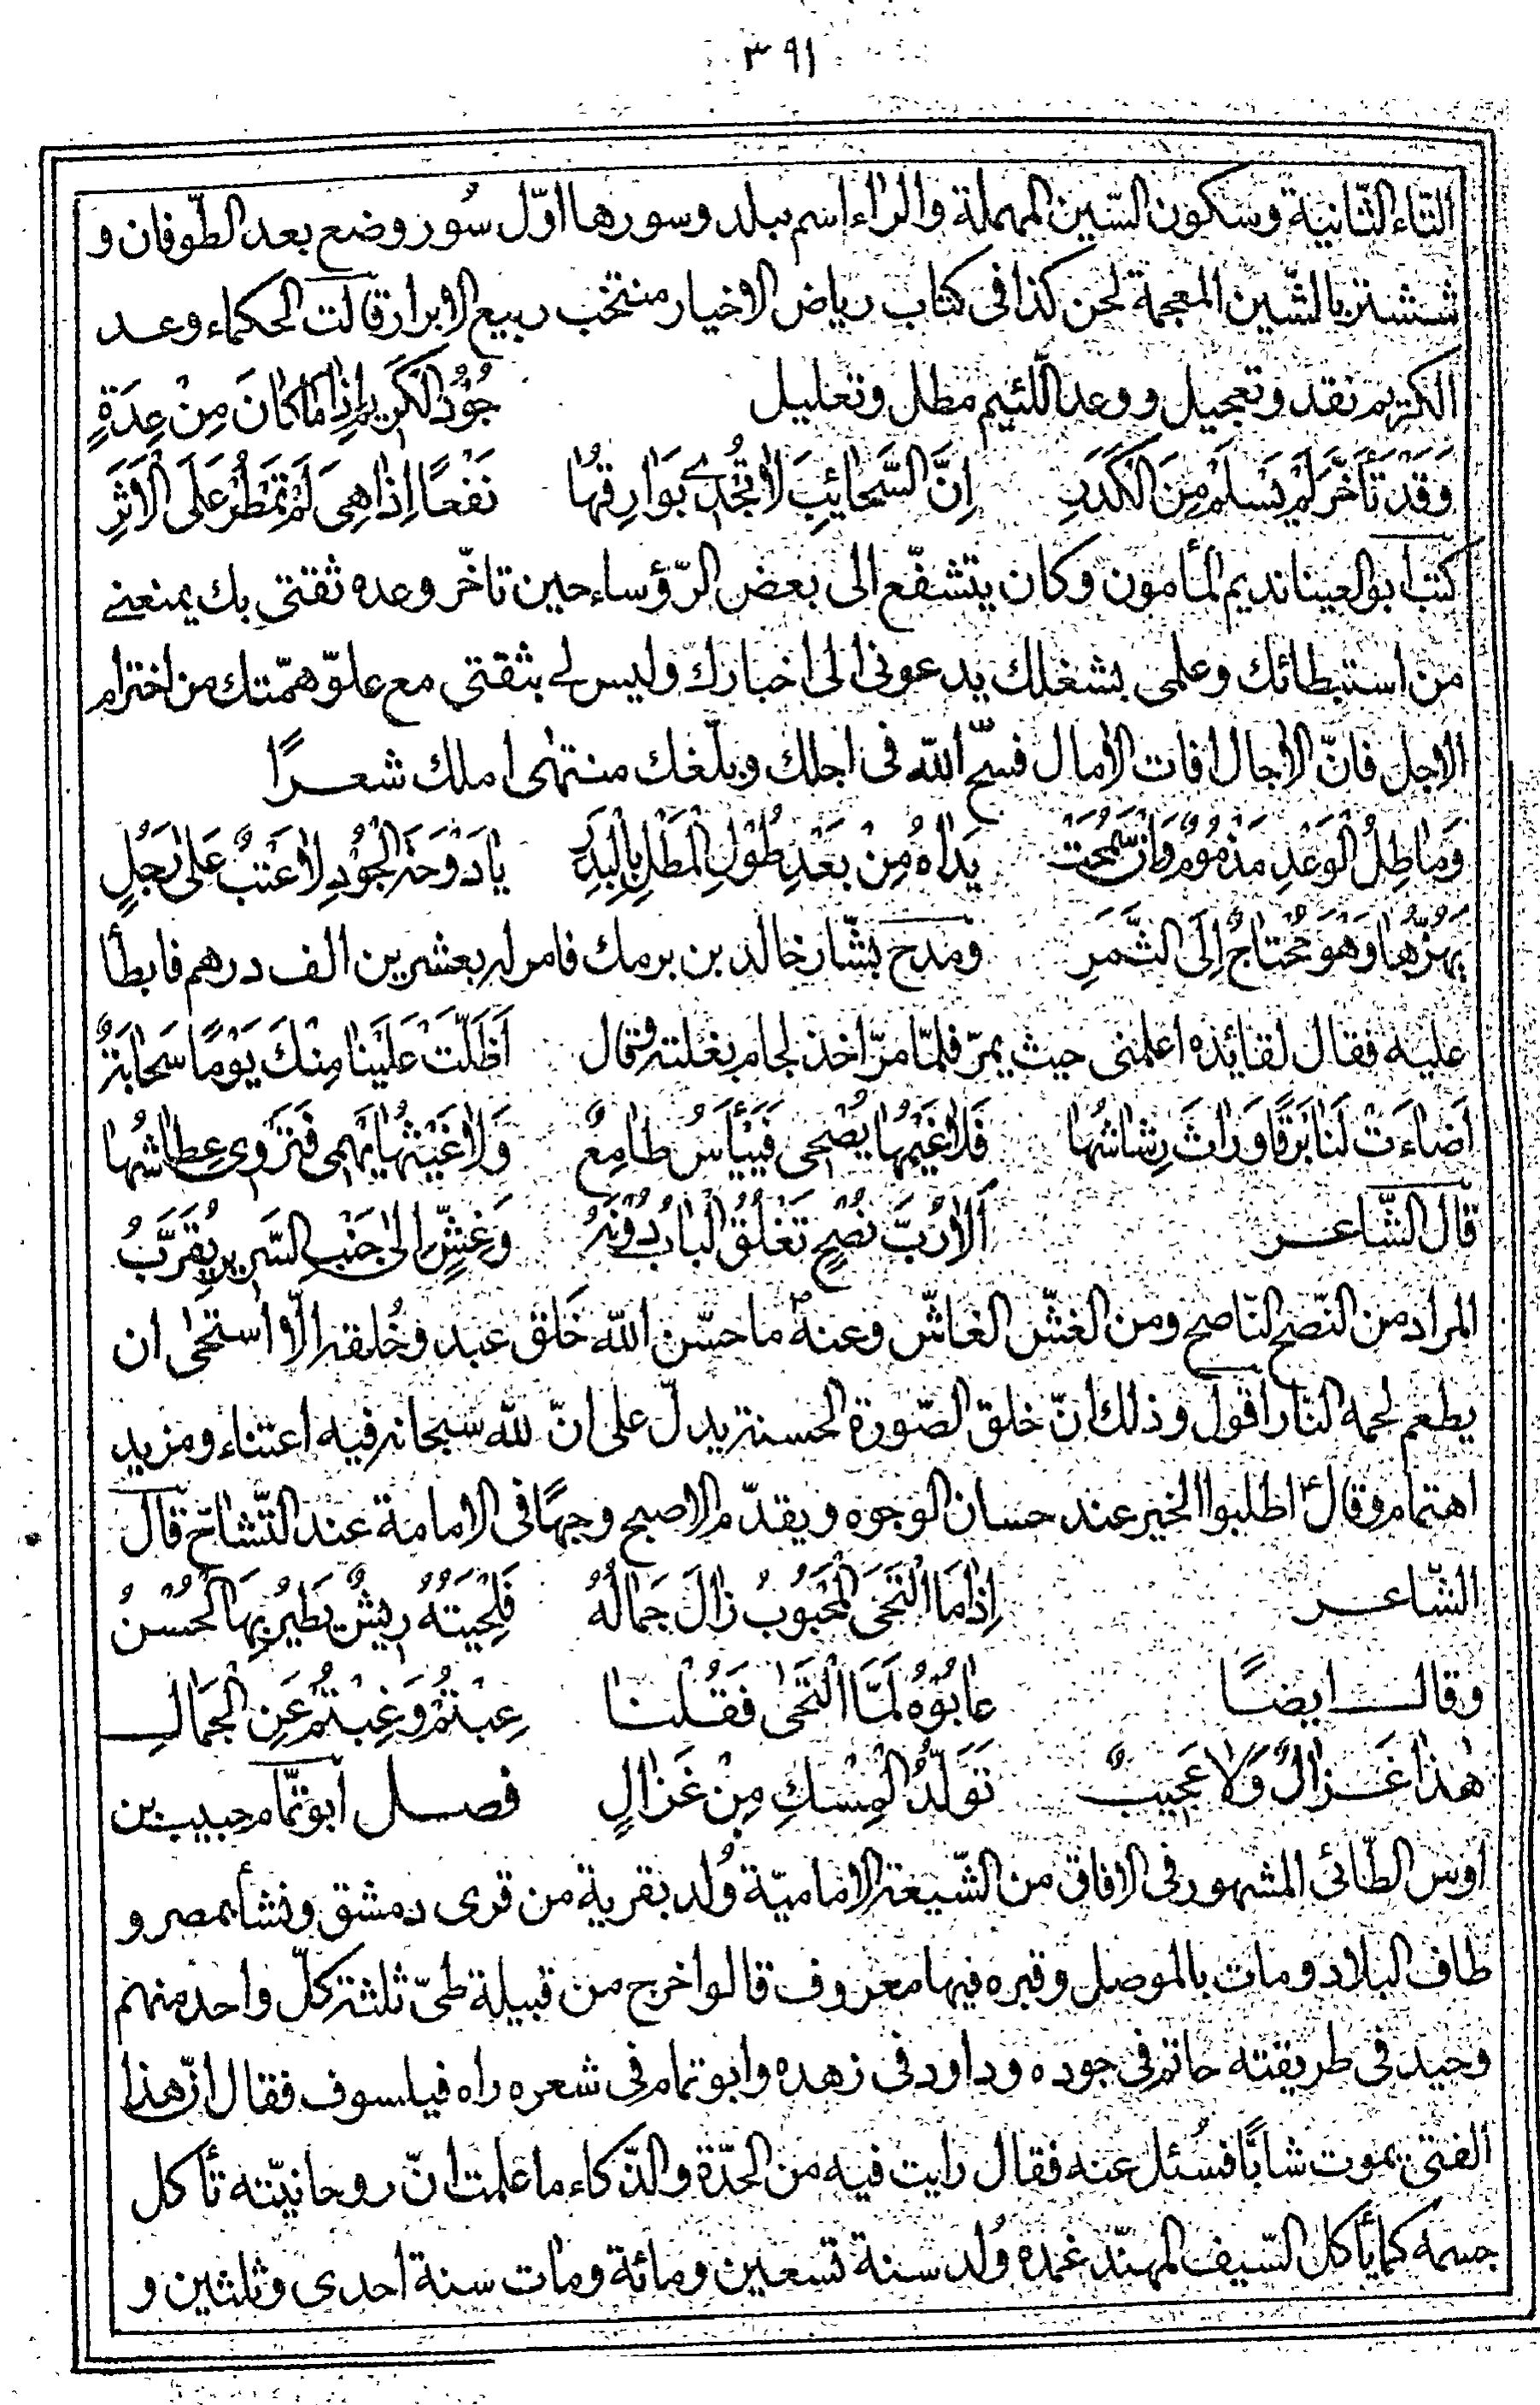 ٣٩١
التّاء الثّانية وسكون السّين المهملة والرّاء اسم بلد وسورها اوّل سُور وضع بعد الطّوفان و
ششتر بالشّين المعجمة لحن كذا فى كتاب رياض الاخيار منتخب ربيع الابرار قالت الحكماء وعد
الكريم نقد وتعجيل ووعد اللّئيم مطل وتعليل جُوْدُ الكَرِيمِ اِذٰا مٰا كٰانَ مِنْ عِدَةٍ
وَقَدْ تَأَخَّرَ لَمْ يَسْلَمْ مِنَ الْكَدَرِ اِنَّ السَّحٰائِبَ لٰا تُجْدِي بَوٰارِقُهٰا نَفْعًا اِذٰا هِىَ لَمْ تَمْطُرْ عَلَى الْاَثَرِ
كتب ابو العينا نديم المأمون وكان يتشفّع الى بعض الرّؤساء حين تاخّر وعده ثقتى بك يمنعنے
من استبطائك وعلمى بشغلك يدعونى الى اخبارك وليس لے بثقتى مع علوّ همّتك من اخترام
الاجل فانّ الاجال افات الامال فسّح اللّه فى اجلك وبلّغك منتهى املك شعرًا
وَمٰاطِلُ الْوَعْدِ مَذْمُوْمٌ وَاِنْ سَمِحَتْ يَدٰاهُ مِنْ بَعْدِ طُوْلِ الْمَطْلِ بِالْبِدَرِ يٰا دَوْحَةَ الْجُوْدِ لٰا عَتْبٌ عَلىٰ رَجُلٍ
يَهُزُّهٰا وَهْوَ مُحْتٰاجٌ اِلَى الثَّمَرِ ومدح بشّار خالد بن برمك فامر له بعشرين الف درهم فابطأ
عليه فقال لقائده اعلمنى حيث يمرّ فلمّا مرّ اخذ لجام بغلته وقال اَظَلَّتْ عَلَيْنٰا مِنْكَ يَوْمًا سَحٰابَةٌ
اَضٰاءَتْ لَنٰا بَرْقًا وَرٰاثَ رِشٰاشُهٰا فَلٰا غَيْمُهٰا يُصْحِى فَيَيْأَسُ طٰامِعٌ وَلٰا غَيْثُهٰا يَهْمِى فَتَرْوىٰ عِطٰاشُهٰا
قال الشّاعر اَلٰا رُبَّ نُصْحٍ تَغْلُقُ الْبٰابُ دُوْنَهُ وَغِشٍّ اِلىٰ جَنْبِ السَّرِيرِ يُقَرَّبُ
المراد من النّصح النّاصح ومن الغشّ الغاشّ وعنه ص ما حسّن اللّه خَلق عبد وخُلقه الّا استحىٰ ان
يطعم لحمه النّار اقول وذلك انّ خلق الصّورة الحسنة يدلّ على انّ للّه سبحانه فيه اعتناء ومزيد
اهتمام وقال ع اطلبوا الخير عند حسان الوجوه ويقدّم الاصبح وجهًا فى الامامة عند التّشاحّ قال
الشّاعر اِذٰا مَا الْتَحَى الْمَحْبُوبُ زٰالَ جَمٰالُهُ فَلِحْيَتُهُ رِيشٌ يَطِيرُ بِهَا الْحُسْنُ
وقال ايضًا عٰابُوْهُ لَمَّا الْتَحىٰ فَقُلْنٰا عِبْتُمْ وَغِبْتُمْ عَنِ الْجَمٰالِ
هٰذٰا غَزٰالٌ وَلٰا عَجِيبٌ تَوَلُّدُ الْمِسْكِ مِنْ غَزٰالٍ فصل ابو تمّام حبيب بن
اوس الطّائى المشهور فى الافاق من الشّيعة الاماميّة وُلد بقرية من قرى دمشق ونشأ بمصر و
طاف البلاد ومات بالموصل وقبره فيها معروف قالوا خرج من قبيلة طىّ ثلثة كلّ واحد منهم
وحيد فى طريقته حاتم فى جوده وداود فى زهده وابو تمام فى شعره راه فيلسوف فقال انّ هذا
الفتى يموت شابًّا فسُئل عنه فقال رايت فيه من الحدّة والذّكاء ما علمت انّ روحانيّته تأكل
جسمه كما يأكل السّيف المهنّد غمده وُلد سنة تسعين ومائة ومات سنة احدى وثلثين و